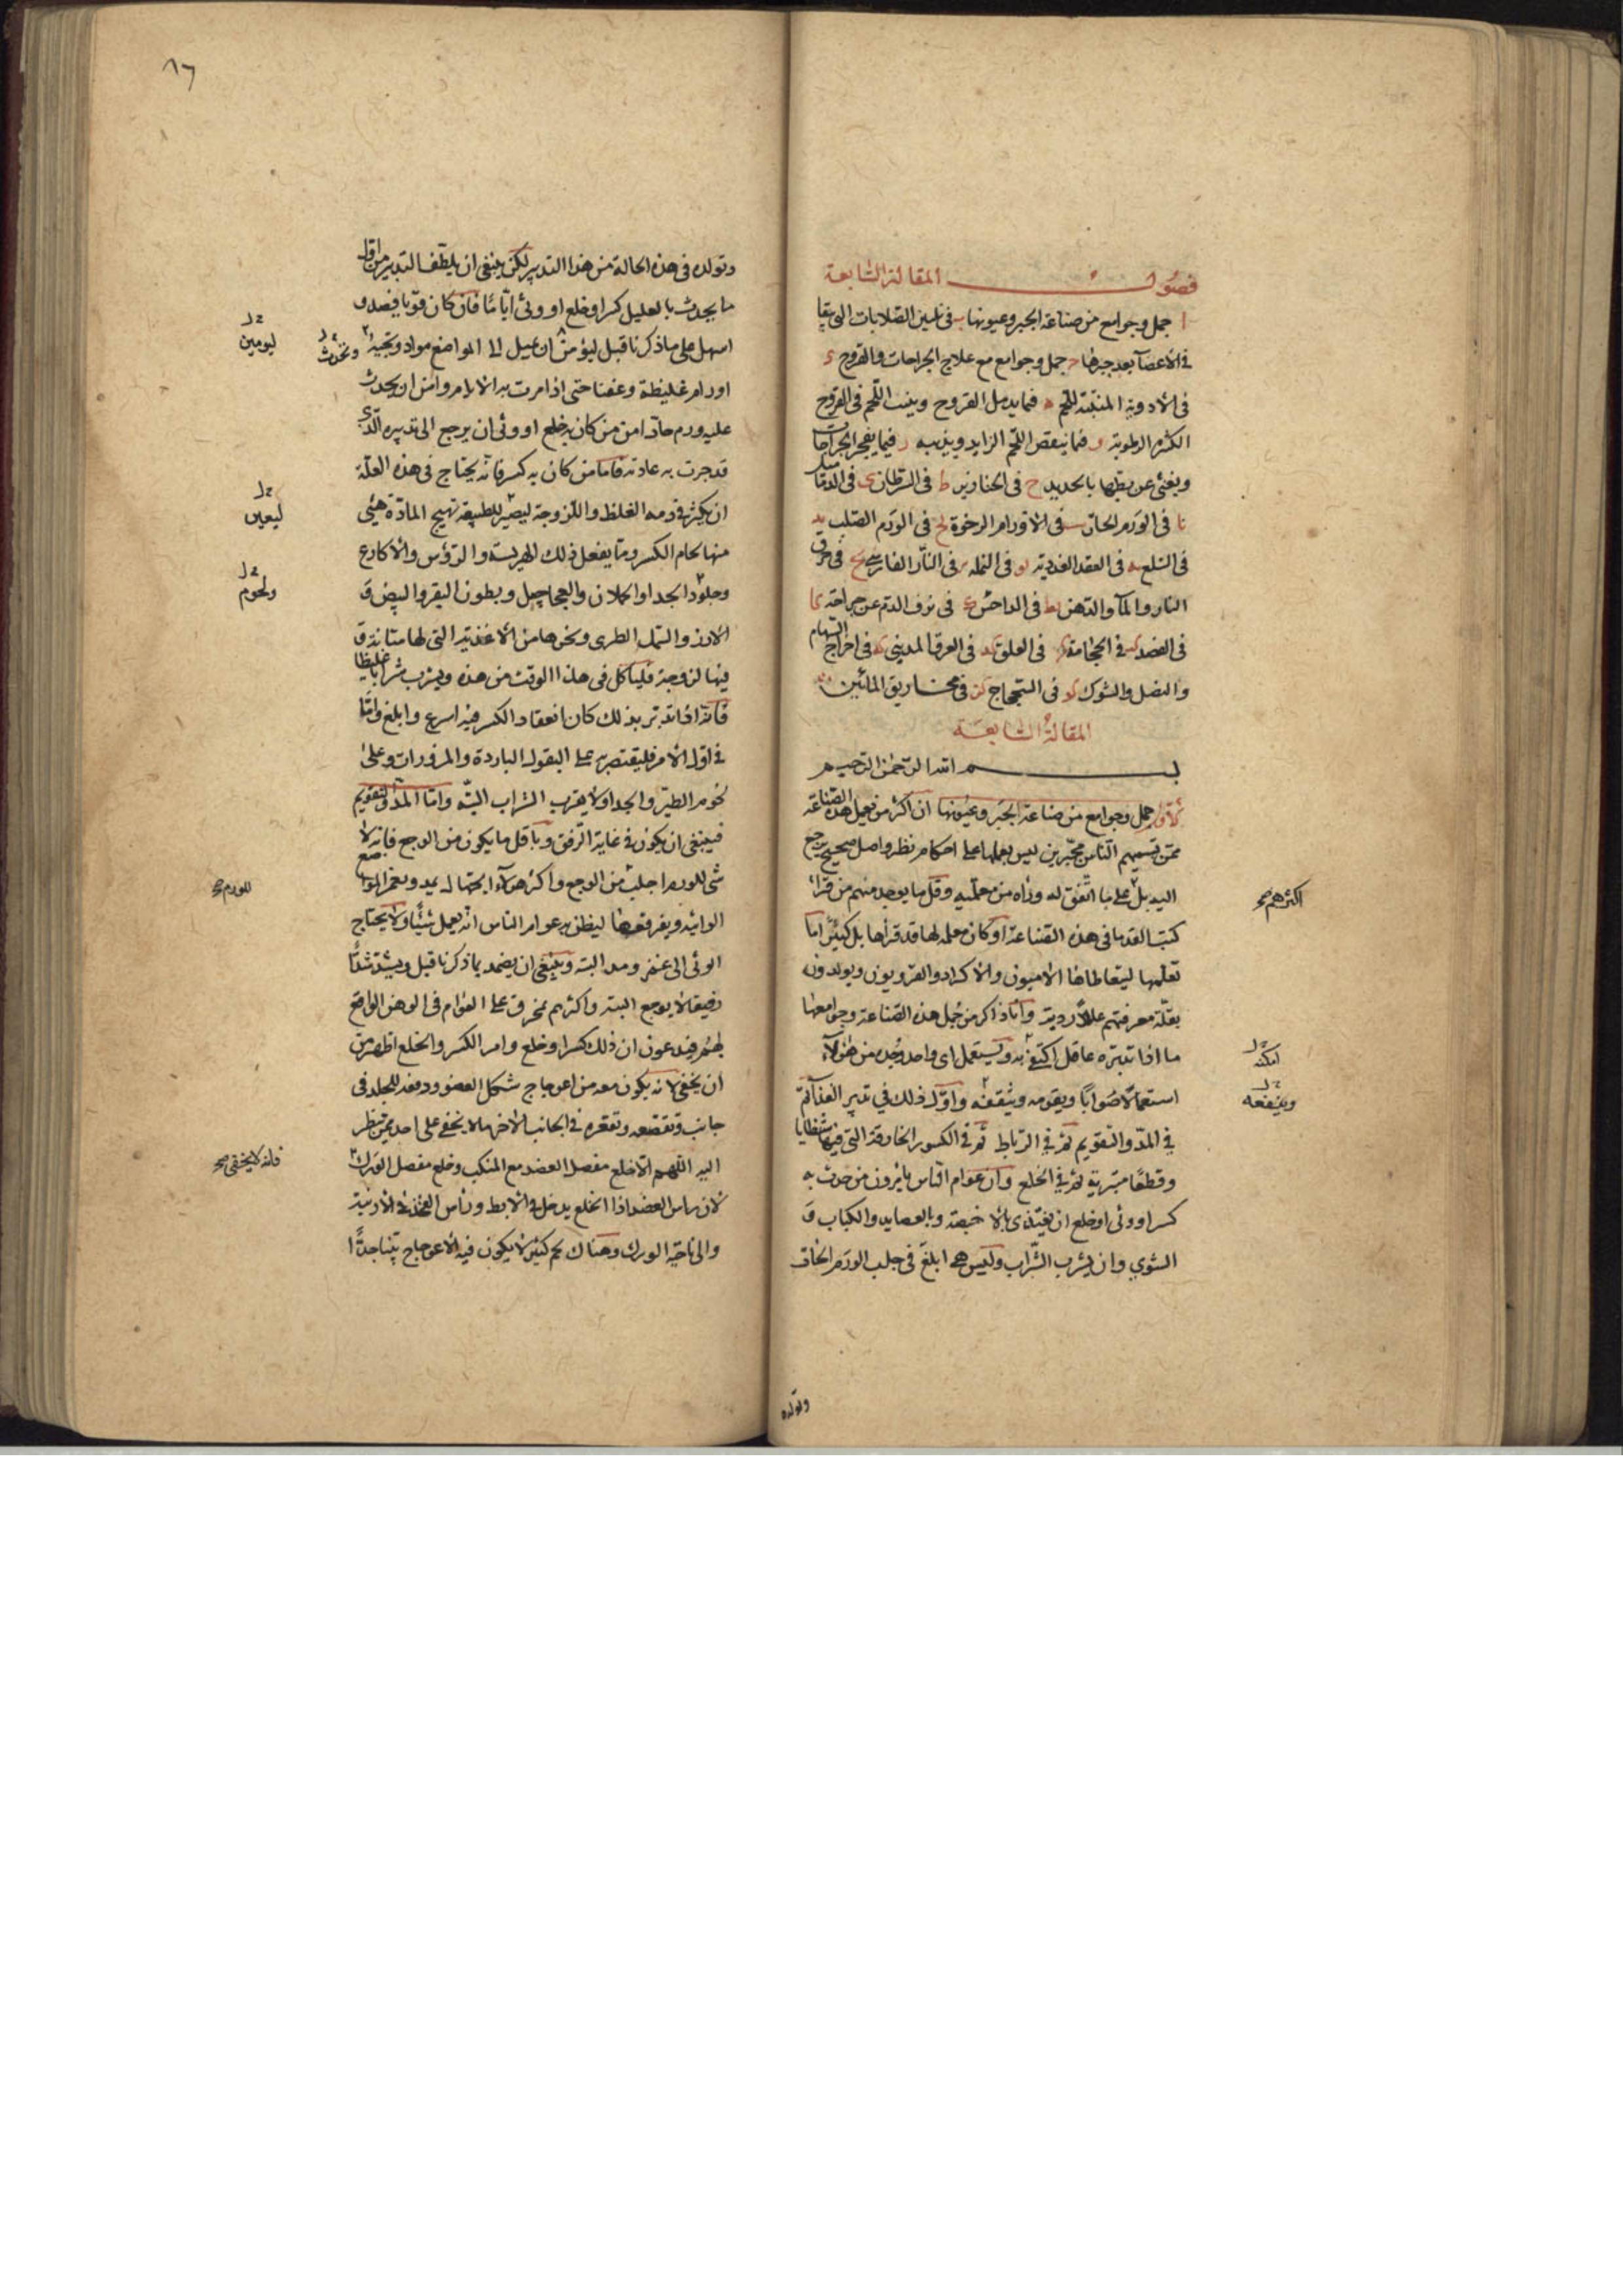 فصول المقالة السابعة
ا جمل وجوامع من صناعة الجبر وعيونها ب في تليين الصلابات التي تبقا
في الاعضا بعد جبرها ج جمل وجوامع مع علاج الجراحات والقروح د
في الادوية المنبتة للحم ه فيما يدمل القروح وينبت اللحم في القروح
الكثيرة الرطوبة و فيما ينقص اللحم الزايد ويذيبه ز فيما يفجر الجراحات
ويغني عن بطها بالحديد ح في الخنازير ط في السرطان ى في الدماميل
يا في الورم الحار يب في الاورام الرخوة يج في الورم الصلب يد
في السلع يه في العقد الغددية يو في النملة يز في النار الفارسي يح في حرق
النار والمآ والدهن يط في الداحس ك في نزف الدم عن جراحة كا
في الفصد كب في الحجامة كج في العلق كد في العرق المديني كه في اخراج السهام
والنصل والشوك كو في الشجاج كز في مخاريق المائين
المقالة السابعة
بسم الله الرحمن الرحيم
جمل وجوامع من صناعة الجبر وعيونها ان اكثر من يعمل هذه الصناعة
ممن تسميهم الناس مجبرين ليس بعملها على احكام نظر واصل صحيح يرجع
اليه بل على ما اتفق له ورآه من معلميه وقل ما يوجد منهم من قرأ
اكثرهم صح
كتب القدما في هذه الصناعة او كان معلمه لها قد قرأها بل كثيرا ما
تعلمها ليتعاطاها الاميون والاكراد والقرويون ويولدون
بقلة معرفتهم عللا ردية وانا ذاكر من جمل هذه الصناعة وجوامعها
ما اذا تدبره عاقل اكتفى به ويستعمل اى واحد وجد من هؤلآء
امكنه
استعمالا صوابا ويقومه ويثقفه واول ذلك في تدبير الغذآ ثم
وينفعه
في المد والتقويم ثم في الرباط ثم في الكسور الخارقة التي فيها شظايا
وقطعا متبرية ثم في الخلع وان عوام الناس يأمرون من حدث به
كسر او وثى او خلع ان يغتذى بالاخبصة وبالعصايد والكباب و
الشوي وان يشرب الشراب وليس شي ابلغ في جلب الورم الحار
وتولده
٨٦
وتولده في هذه الحالة من هذا التدبير لكن ينبغي ان يلطف التدبير من اول
ما يحدث بالعليل كسر او خلع او وثئ اياما فان كان قويا فيصد و
اسهل على ما ذكرنا قبل ليؤمن ان يميل الى المواضع مواد ويجئ
ليومين
وتحدث
اورام غليظة وعفنا حتى اذا مرت به الايام وامن ان يحدث
عليه ورم حار امن من كان به خلع او وثى ان يرجع الى تدبيره الذي
قد جرت به عادته فاما من كان به كسر فانه يحتاج في هذه العلة
ان يكثر في دمه الغلظ واللزوجة ليصير للطبيعة تهيج المادة هيئ
ليعين
منها لحام الكسر ومما يفعل ذلك الهريسة والرؤس والاكارع
وجلود الجدا والحملان والعجاجيل وبطون البقر والبيض و
ولحوم
الارز والسمك الطرى ونحوها من الاغذية التي لها متانة و
فيها لزوجة فليأكل في هذا الوقت من هذه ويشرب شرابا غليظا
فانه اذا تدبر بذلك كان انعقاد الكسر فيه اسرع وابلغ واما
في اول الامر فليقتصر به على البقول الباردة والمزورات وعلى
لحوم الطير والجدا ولا يقرب الشراب البتة واما المد والتقويم
فينبغي ان يكون في غاية الرفق وباقل ما يكون من الوجع فانه لا
شى للورم اجلب من الوجع واكثر هؤلآء الجهال يمد ويغمز المواضع
للورم صح
الواثية ويفرقعها ليظن به عوام الناس انه يعمل شيئا ولا يحتاج
الوثى الى غمز ومد البتة وينبغي ان يضمد بما ذكرنا قبل ويشد شدا
رفيقا لا يوجع البتة واكثرهم يمخرق على العوام في الوهن الواقع
لهم فيدعون ان ذلك كسر او خلع وامر الكسر والخلع اظهر من
ان يخفى لانه يكون معه من اعوجاج شكل العضو ودفعه للجلد في
جانب وتقصعه وتقعره في الجانب الاخر ما لا يخفى على احد ممن ينظر
اليه اللهم الا خلع مفصل العضد مع المنكب وخلع مفصل الورك
فانه لا يخفى صح
لان راس العضد اذا انخلع يدخل في الابط وراس الفخذ في الاربية
والى ناحية الورك وهناك لحم كثير لا يكون فيه الاعوجاج بينا جدا